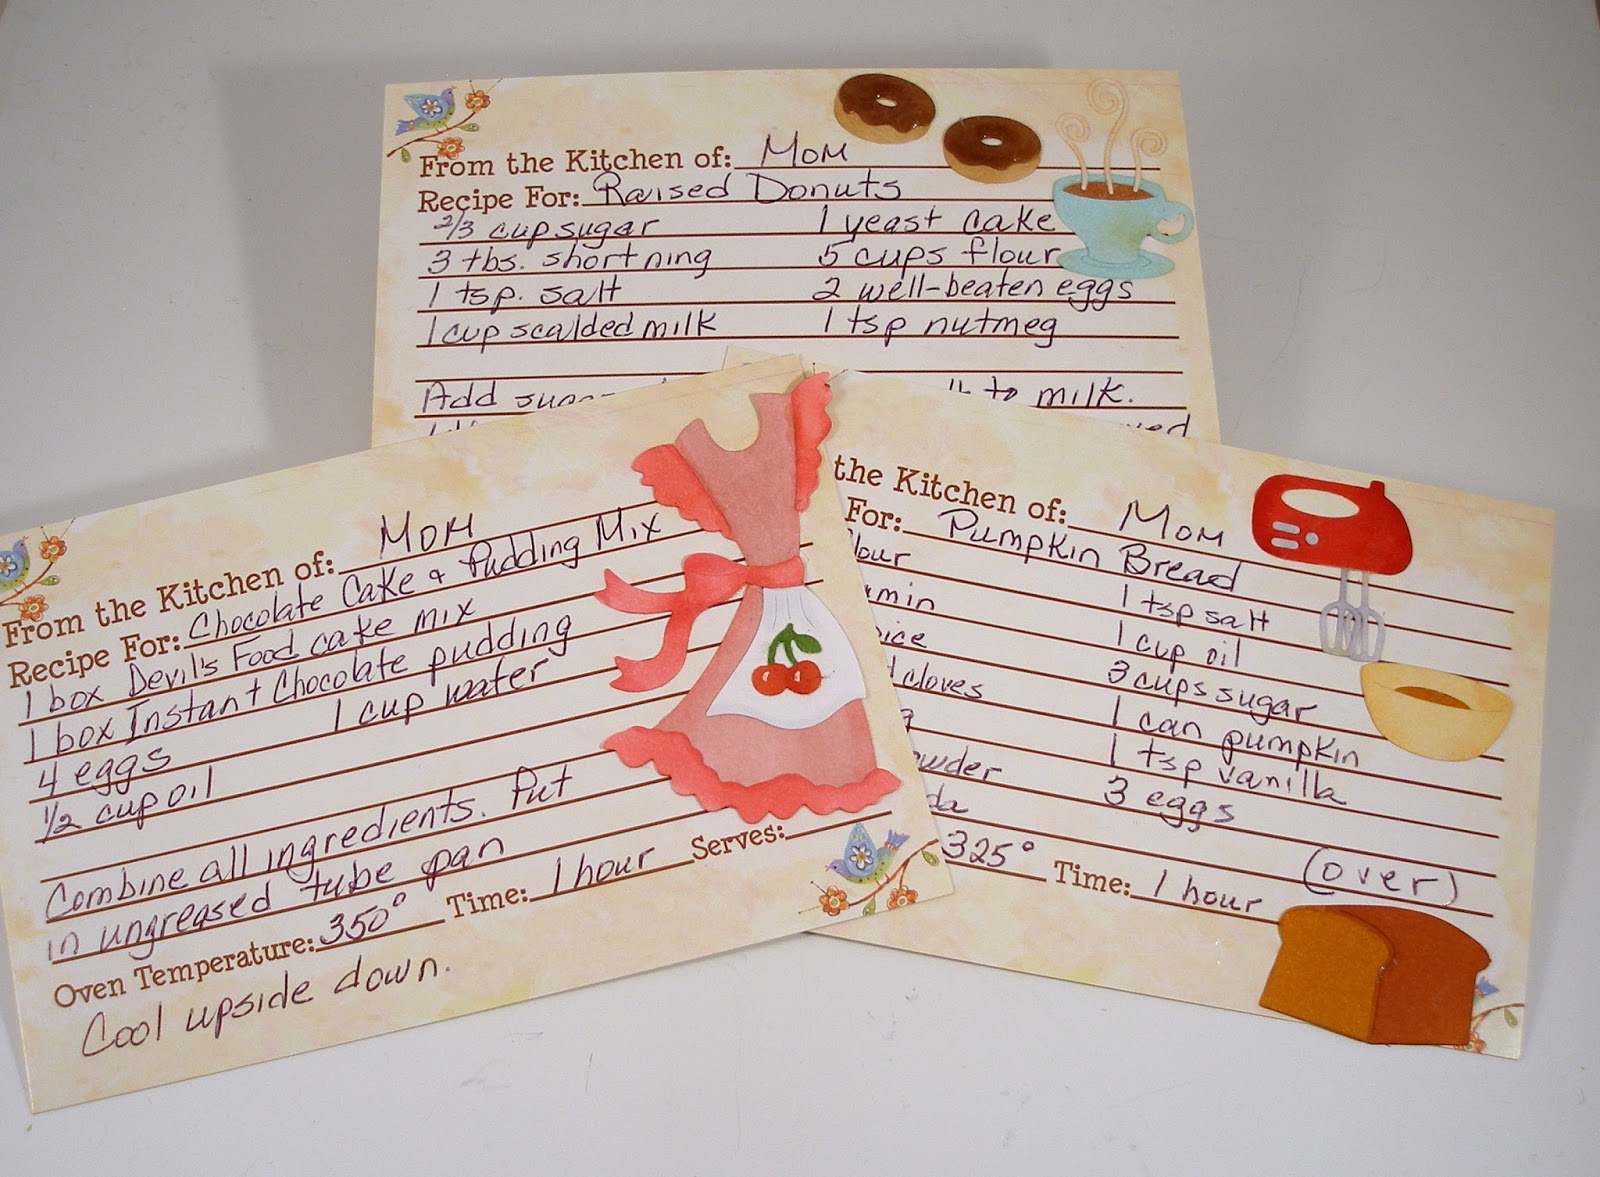 From the Kitchen of: Mom
Recipe For: Raised Donuts
2/3 cup sugar 1 yeast cake
3 tbs. shortning 5 cups flour
1 tsp. salt 2 well-beaten eggs
1 cup scalded milk 1 tsp nutmeg
Add to milk.
From the Kitchen of: Mom
Recipe For: Chocolate Cake & Pudding Mix
1 box Devil's Food cake mix
1 box Instant Chocolate pudding
4 eggs 1 cup water
1/2 cup oil
Combine all ingredients. Put
in ungreased tube pan
Oven Temperature: 350° Time: 1 hour Serves:
Cool upside down.
the Kitchen of: Mom
For: Pumpkin Bread
1 tsp salt
1 cup oil
cloves 3 cups sugar
1 can pumpkin
1 tsp vanilla
3 eggs
(over)
325° Time: 1 hour